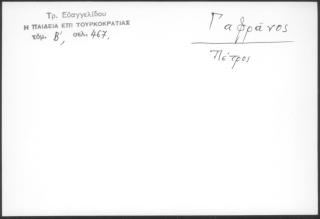 Τρ. Εὐαγγελίδου
Η ΠΑΙΔΕΙΑ ΕΠΙ ΤΟΥΡΚΟΚΡΑΤΙΑΣ
τόμ. Β', σελ. 467.
Γαφράνος
Πέτρος